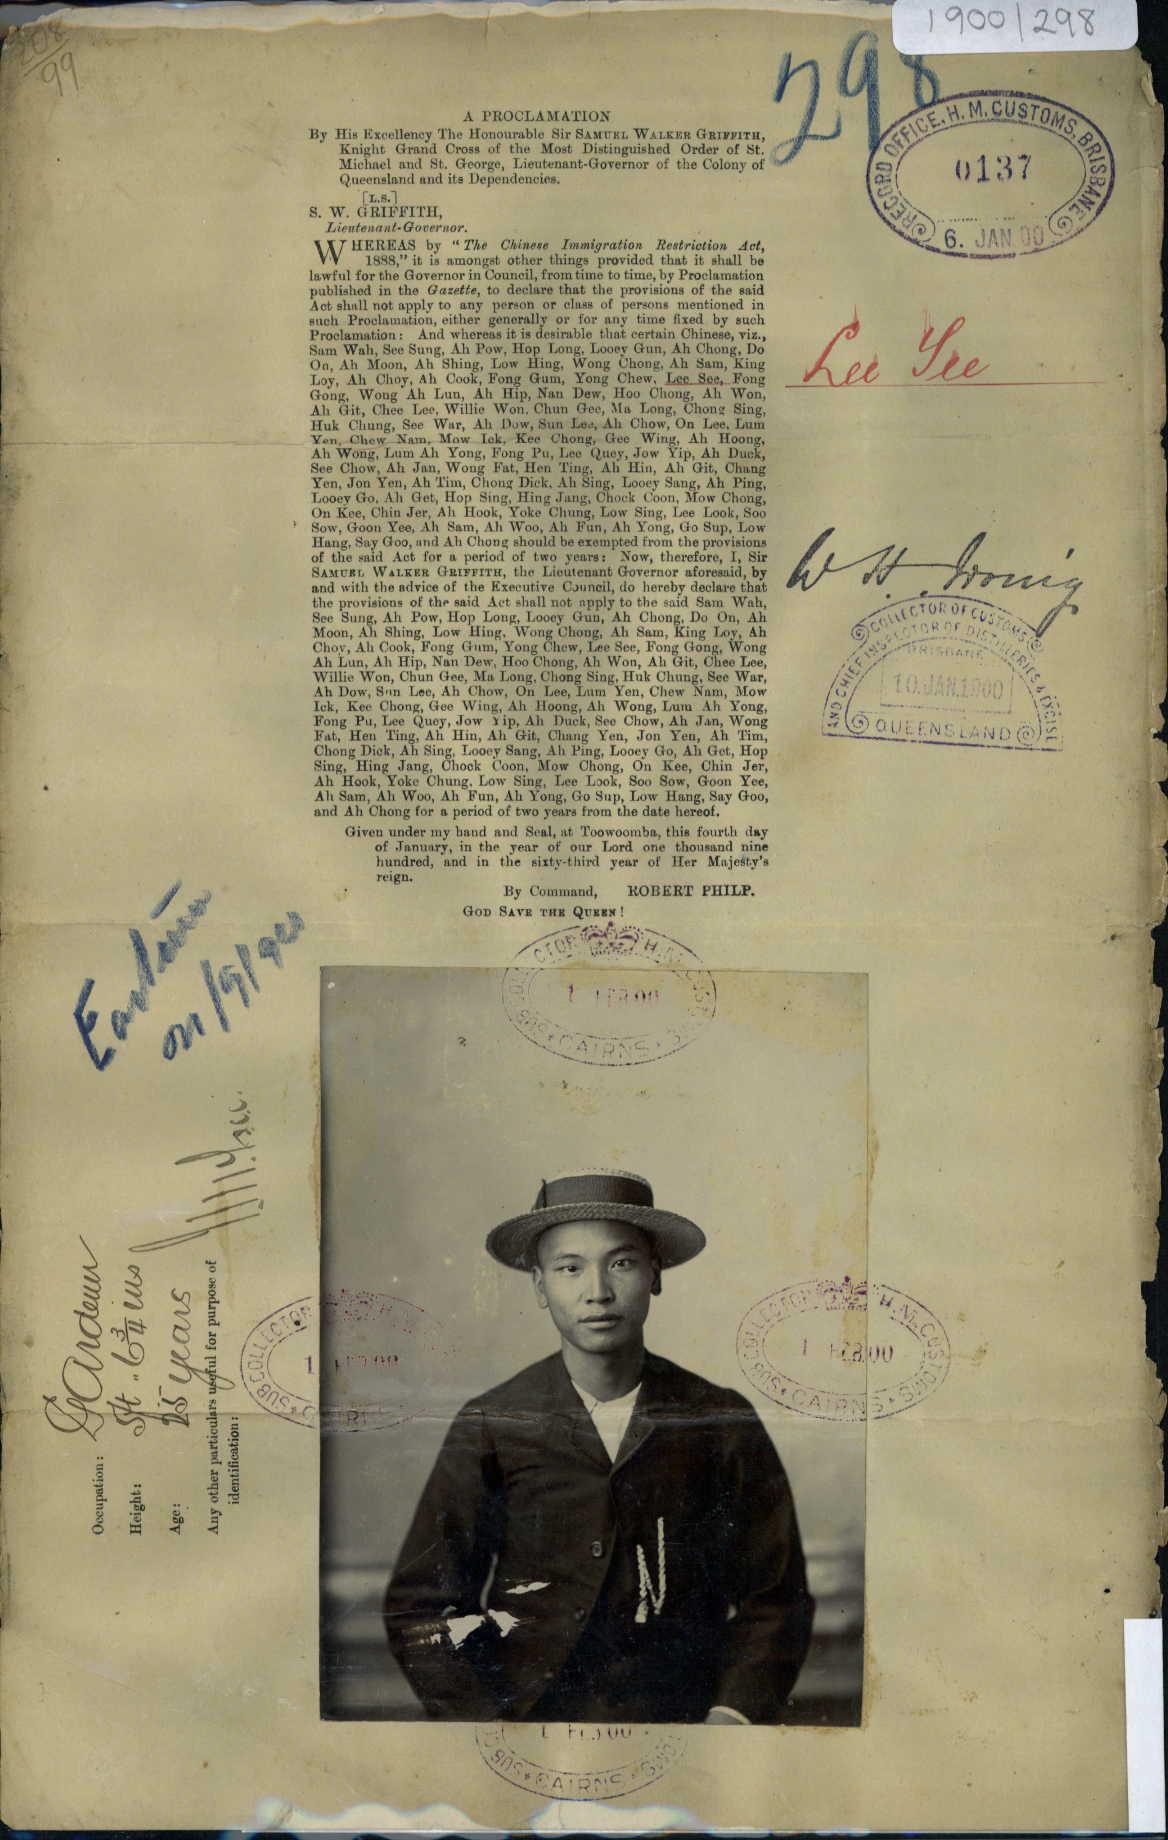 1900/298
298
99
RECORD OFFICE. H. M. CUSTOMS. BRISBANE
0137
6. JAN 00
A PROCLAMATION
By His Excellency The Honourable Sir SAMUEL WALKER GRIFFITH,
Knight Grand Cross of the Most Distinguished Order of St.
Michael and St. George, Lieutenant-Governor of the Colony of
Queensland and its Dependencies.
[L.S.]
S. W. GRIFFITH,
Lieutenant-Governor.
WHEREAS by "The Chinese Immigration Restriction Act,
1888," it is amongst other things provided that it shall be
lawful for the Governor in Council, from time to time, by Proclamation
published in the Gazette, to declare that the provisions of the said
Act shall not apply to any person or class of persons mentioned in
such Proclamation, either generally or for any time fixed by such
Proclamation: And whereas it is desirable that certain Chinese, viz.,
Sam Wah, See Sung, Ah Pow, Hop Long, Looey Gun, Ah Chong, Do
On, Ah Moon, Ah Shing, Low Hing, Wong Chong, Ah Sam, King
Loy, Ah Choy, Ah Cook, Fong Gum, Yong Chew, Lee See, Fong
Gong, Wong Ah Lun, Ah Hip, Nan Dew, Hoo Chong, Ah Won,
Ah Git, Chee Lee, Willie Won, Chun Gee, Ma Long, Chong Sing,
Huk Chung, See War, Ah Dow, Sun Lee, Ah Chow, On Lee, Lum
Yen, Chew Nam, Mow Ick, Kee Chong, Gee Wing, Ah Hoong,
Ah Wong, Lum Ah Yong, Fong Pu, Lee Quey, Jow Yip, Ah Duck,
See Chow, Ah Jan, Wong Fat, Hen Ting, Ah Hin, Ah Git, Chang
Yen, Jon Yen, Ah Tim, Chong Dick, Ah Sing, Looey Sang, Ah Ping,
Looey Go, Ah Get, Hop Sing, Hing Jang, Chock Coon, Mow Chong,
On Kee, Chin Jer, Ah Hook, Yoke Chung, Low Sing, Lee Look, Soo
Sow, Goon Yee, Ah Sam, Ah Woo, Ah Fun, Ah Yong, Go Sup, Low
Hang, Say Goo, and Ah Chong should be exempted from the provisions
of the said Act for a period of two years: Now, therefore, I, Sir
SAMUEL WALKER GRIFFITH, the Lieutenant Governor aforesaid, by
and with the advice of the Executive Council, do hereby declare that
the provisions of the said Act shall not apply to the said Sam Wah,
See Sung, Ah Pow, Hop Long, Looey Gun, Ah Chong, Do On, Ah
Moon, Ah Shing, Low Hing, Wong Chong, Ah Sam, King Loy, Ah
Choy, Ah Cook, Fong Gum, Yong Chew, Lee See, Fong Gong, Wong
Ah Lun, Ah Hip, Nan Dew, Hoo Chong, Ah Won, Ah Git, Chee Lee,
Willie Won, Chun Gee, Ma Long, Chong Sing, Huk Chung, See War,
Ah Dow, Sun Lee, Ah Chow, On Lee, Lum Yen, Chew Nam, Mow
Ick, Kee Chong, Gee Wing, Ah Hoong, Ah Wong, Lum Ah Yong,
Fong Pu, Lee Quey, Jow Yip, Ah Duck, See Chow, Ah Jan, Wong
Fat, Hen Ting, Ah Hin, Ah Git, Chang Yen, Jon Yen, Ah Tim,
Chong Dick, Ah Sing, Looey Sang, Ah Ping, Looey Go, Ah Get, Hop
Sing, Hing Jang, Chock Coon, Mow Chong, On Kee, Chin Jer,
Ah Hook, Yoke Chung, Low Sing, Lee Look, Soo Sow, Goon Yee,
Ah Sam, Ah Woo, Ah Fun, Ah Yong, Go Sup, Low Hang, Say Goo,
and Ah Chong for a period of two years from the date hereof.
Given under my hand and Seal, at Toowoomba, this fourth day
of January, in the year of our Lord one thousand nine
hundred, and in the sixty-third year of Her Majesty's
reign.
By Command, ROBERT PHILP.
GOD SAVE THE QUEEN!
Lee See
W H Irving
COLLECTOR OF CUSTOMS
AND CHIEF INSPECTOR OF DISTILLERIES & EXCISE
BRISBANE
10. JAN. 1900
QUEENSLAND
Eastern
SUB COLLECTOR H.M. CUSTOMS
1 FEB 00
CAIRNS
Occupation: Gardener
Height: 5ft.. 6 3/4 ins
Age: 25 years
Any other particulars useful for purpose of
identification:
SUB COLLECTOR
1 FEB 00
SUB COLLECTOR H.M. CUSTOMS
1 FEB 00
CAIRNS
1 FEB 00
SUB CAIRNS